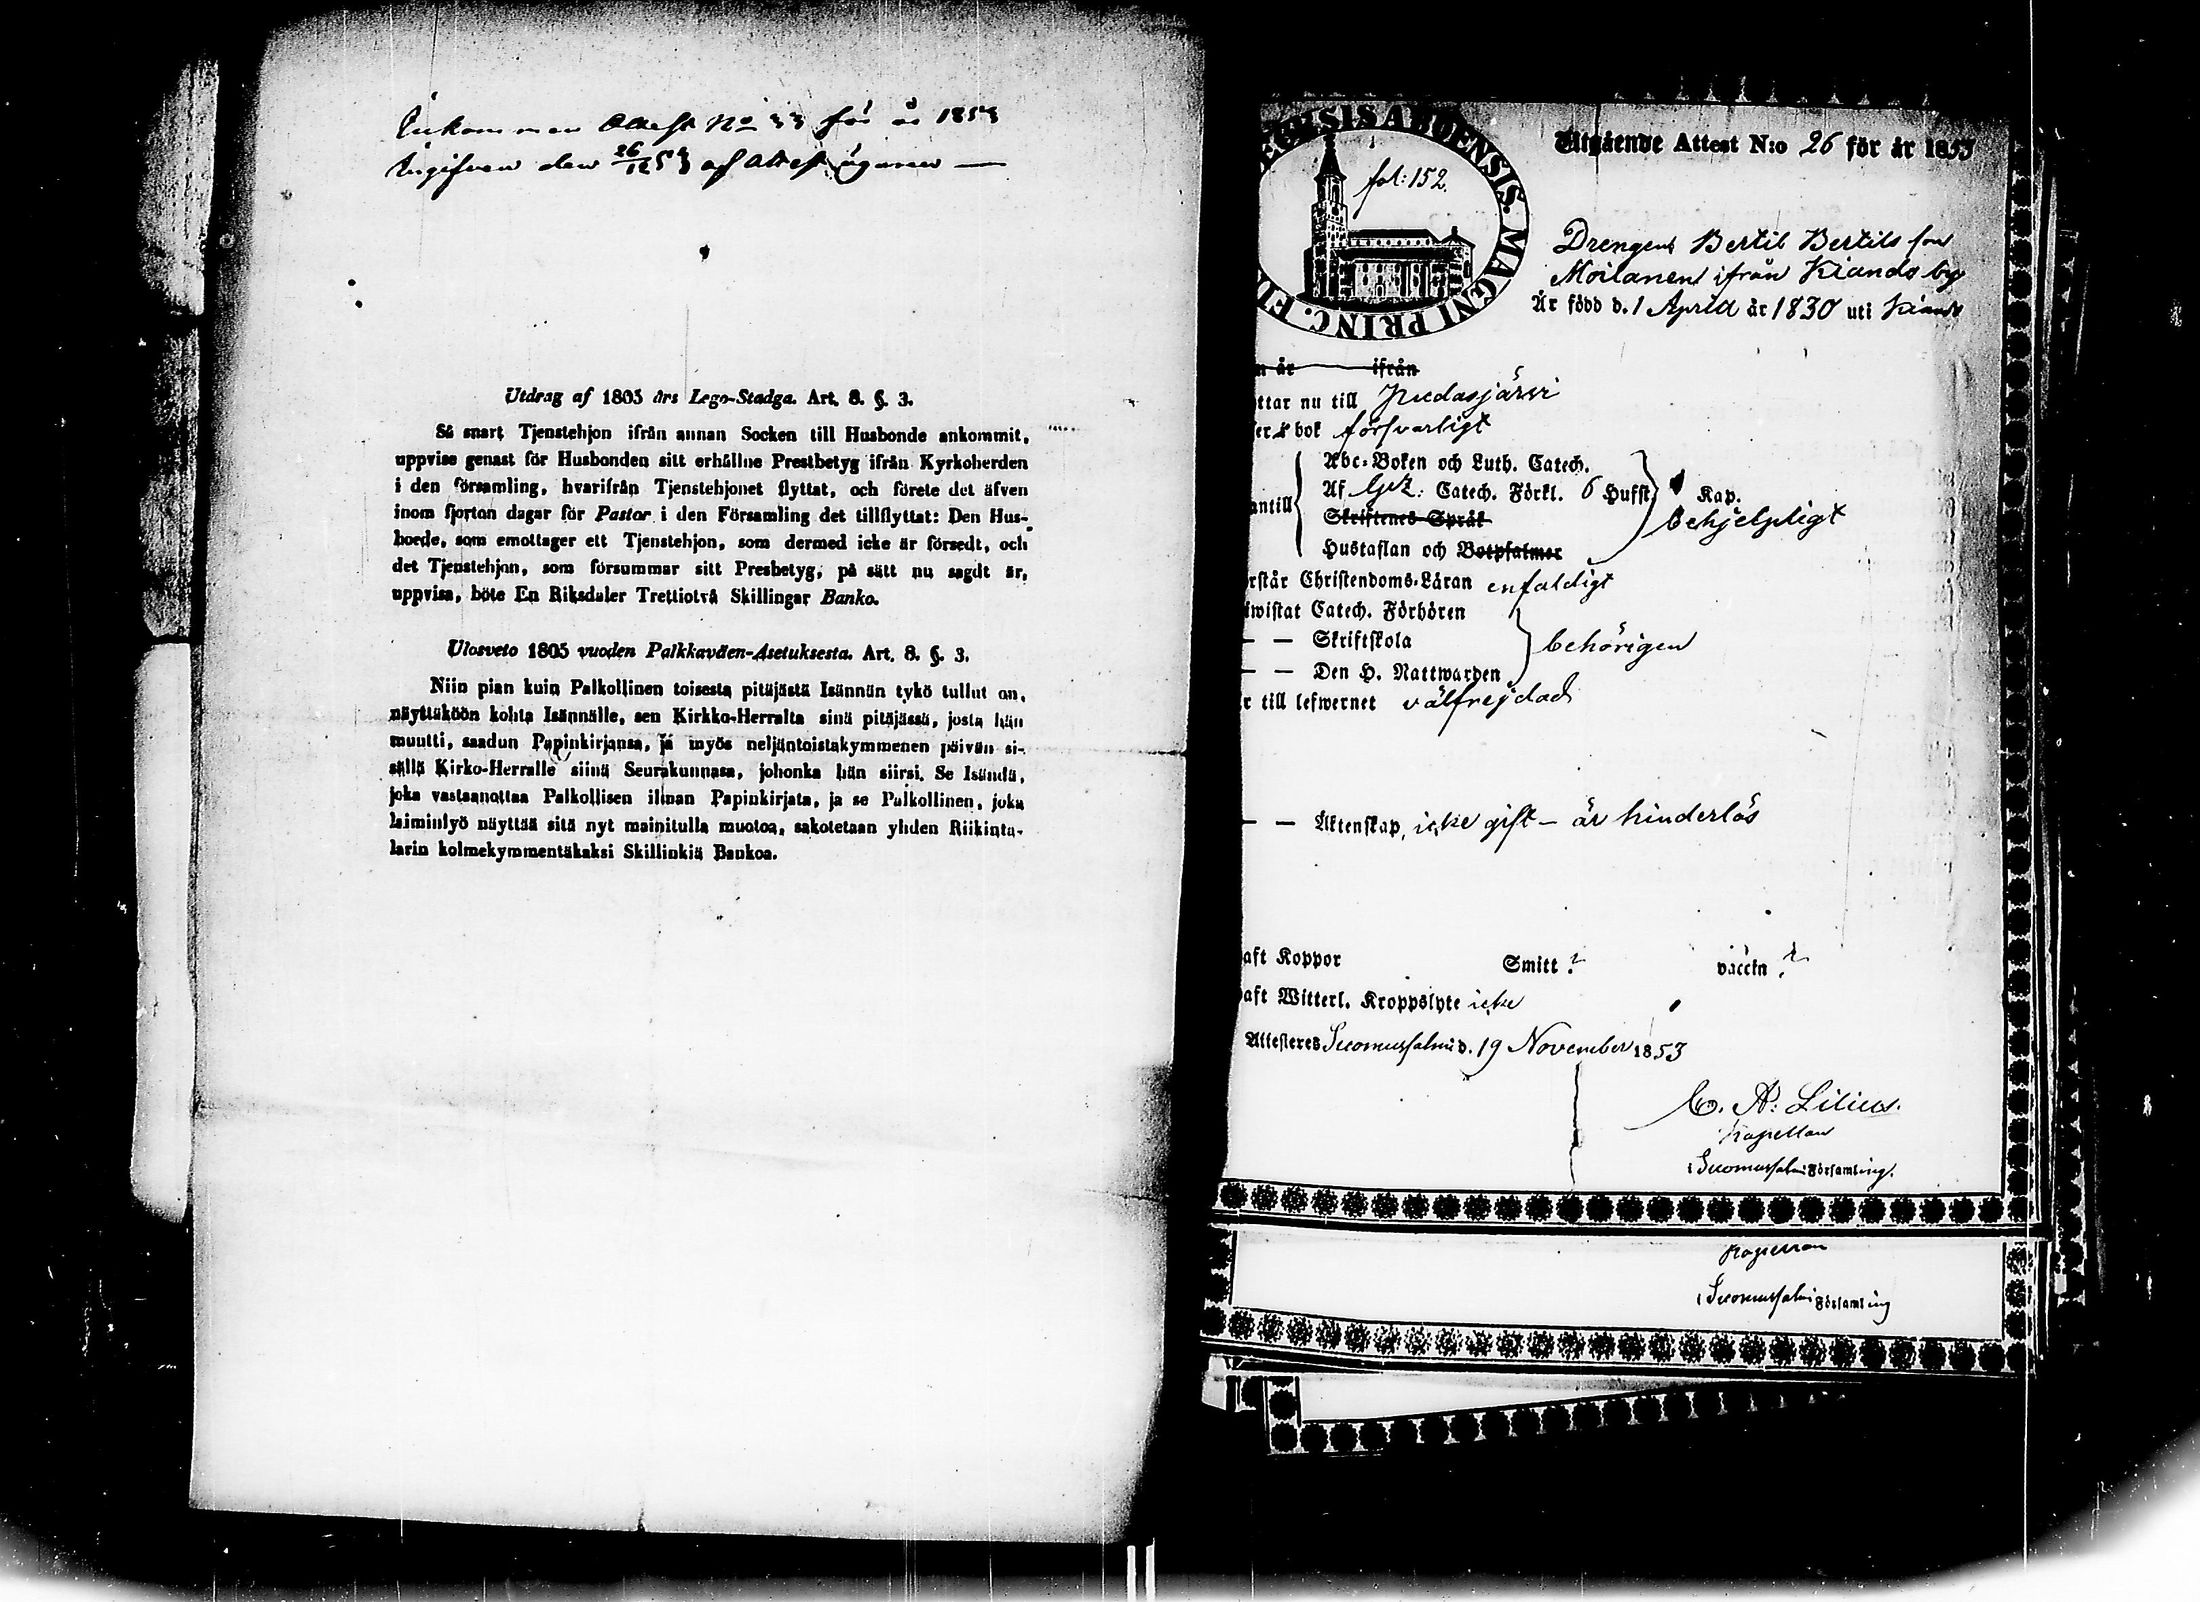 Inkommen Attest No 33 för år 1853
Ingifven den 26/12 53 af Attest ägaren —
Utdrag af 1805 års Lego-Stadga. Art. 8. §. 3.
Så snart Tjenstehjon ifrån annan Socken till Husbonde ankommit,
uppvise genast för Husbonden sitt erhållne Prestbetyg ifrån Kyrkoherden
i den församling, hvarifrån Tjenstehjonet flyttat, och förete det äfven
inom fjorton dagar för Pastor i den Församling det tillflyttat: Den Hus-
boede, som emottager ett Tjenstehjon, som dermed icke är försedt, och
det Tjenstehjon, som försummar sitt Presbetyg, på sätt nu sagdt är,
uppvisa, böte En Riksdaler Trettiotvå Skillingar Banko.
Ulosveto 1805 vuoden Palkkaväen-Asetuksesta. Art. 8. §. 3.
Niin pian kuin Palkollinen toisesta pitäjästä Isännän tykö tullut on,
näyttäköön kohta Isännälle, sen Kirkko-Herralta sinä pitäjässä, josta hän
muutti, saadun Papinkirjansa, ja myös neljäntoistakymmenen päivän si-
sällä Kirko-Herralle siinä Seurakunnasa, johonka hän siirsi. Se Isäntä,
joka vastaanottaa Palkollisen ilman Papinkirjata, ja se Palkollinen, joka
laiminlyö näyttää sitä nyt mainitulla muotoa, sakotetaan yhden Riikinta-
larin kolmekymmentäkaksi Skillinkiä Bankoa.
ENSIS ABOENSIS. MAGNI PRINC. FI
fol: 152.
Utgående Attest N:o 26 för år 1853
Drengen Bertil Bertils son
Moilanen ifrån Kiando by
Är född d. 1 April år 1830 uti Kiando
n år ifrån
ttar nu till Pudasjärvi
er i bok försvarligt
antill
Abc-Boken och Luth. Catech.
Af Catech. Förkl. 6 Hufst. Kap.
Skriftenes Språk
behjelpligt
Hustaflan och Botpsalmer
rstår Christendoms-Läran enfaldigt
iwistat Catech. Förhören
— — Skriftskola behörigen
— — Den H. Nattwarden
r till lefwernet välfrejdad
— — Äktenskap, icke gift — är hinderlös
aft Koppor Smitt ? vaccin ?
aft Witterl. Kroppslyte icke
Attesteres Suomussalmi d. 19 November 1853
C. A: Lilius.
Kapellan
i Suomussalmi Församling.
Kapellan
i Suomussalmi Församling